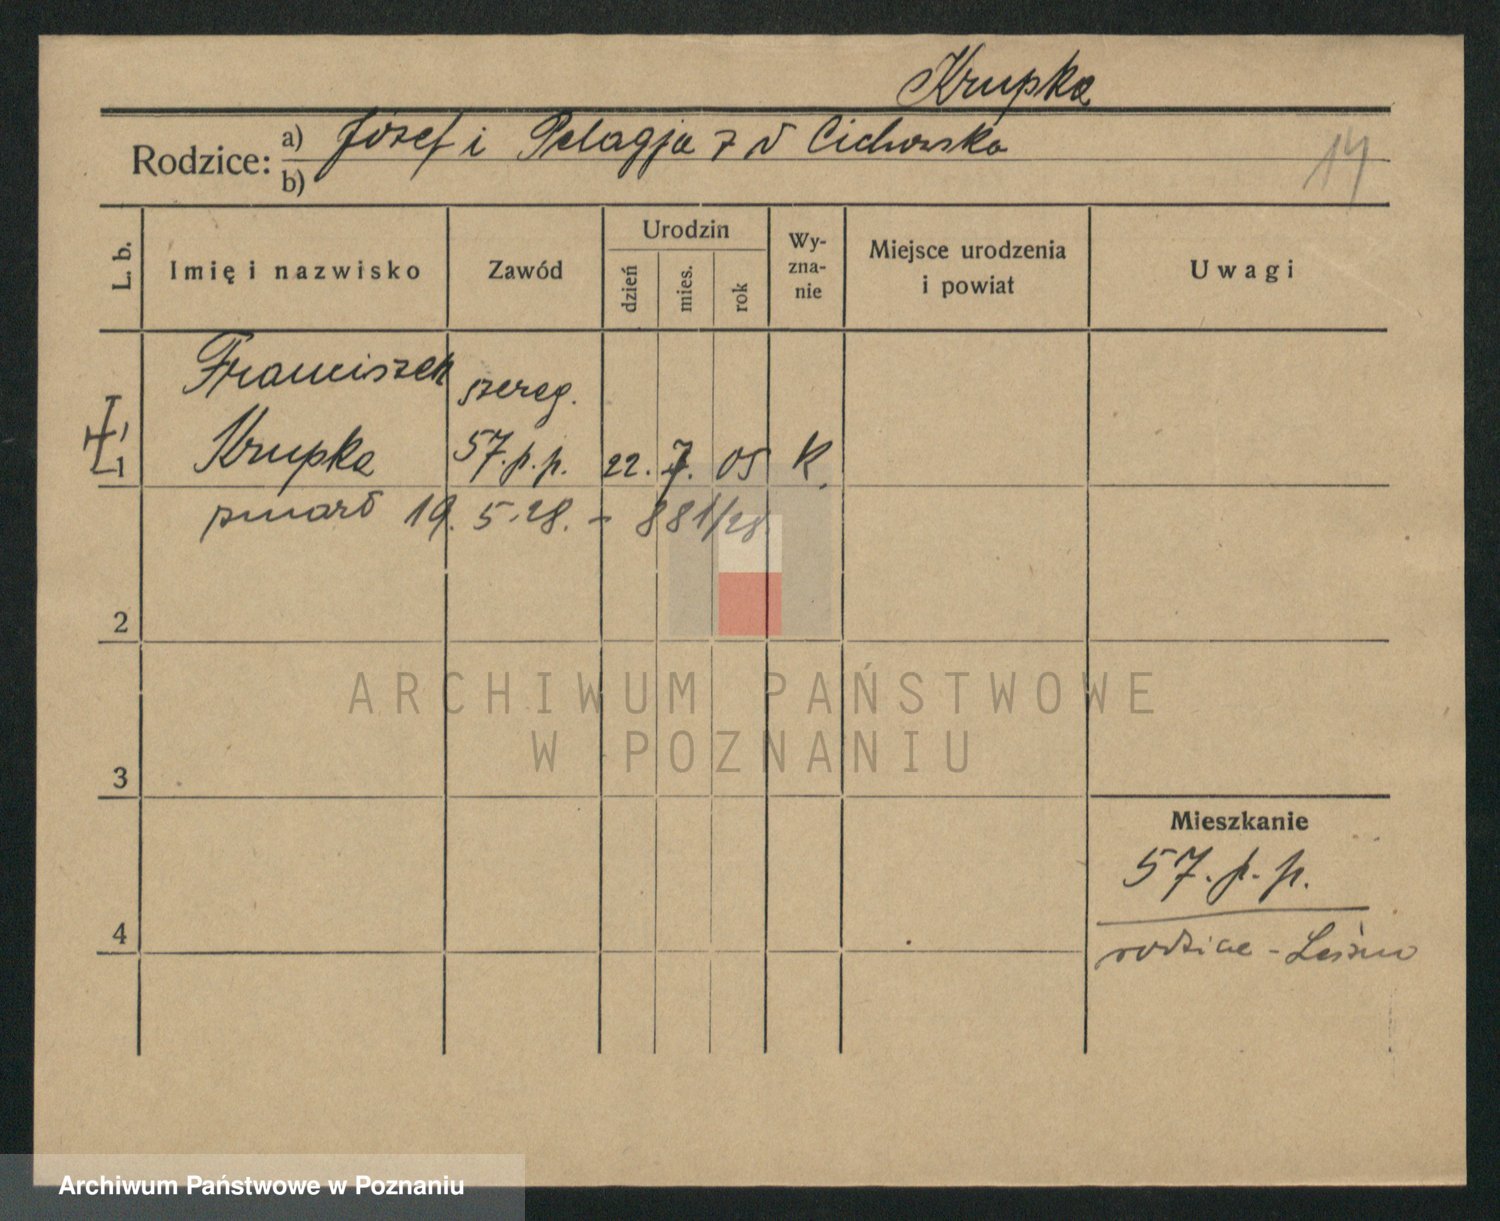 Krupka
Rodzice: a) Józef i Pelagja z d Cichowska
b)
14
L. b.
Imię i nazwisko
Zawód
Urodzin
dzień
mies.
rok
Wy-
zna-
nie
Miejsce urodzenia
i powiat
Uwagi
Franciszek
szereg.
1
Krupka
57.p.p.
22. 7. 05
K.
zmarł 19. 5.28. - 881/28.
2
3
4
Mieszkanie
57. p. p.
rodzice -
ARCHIWUM PAŃSTWOWE
W POZNANIU
Archiwum Państwowe w Poznaniu